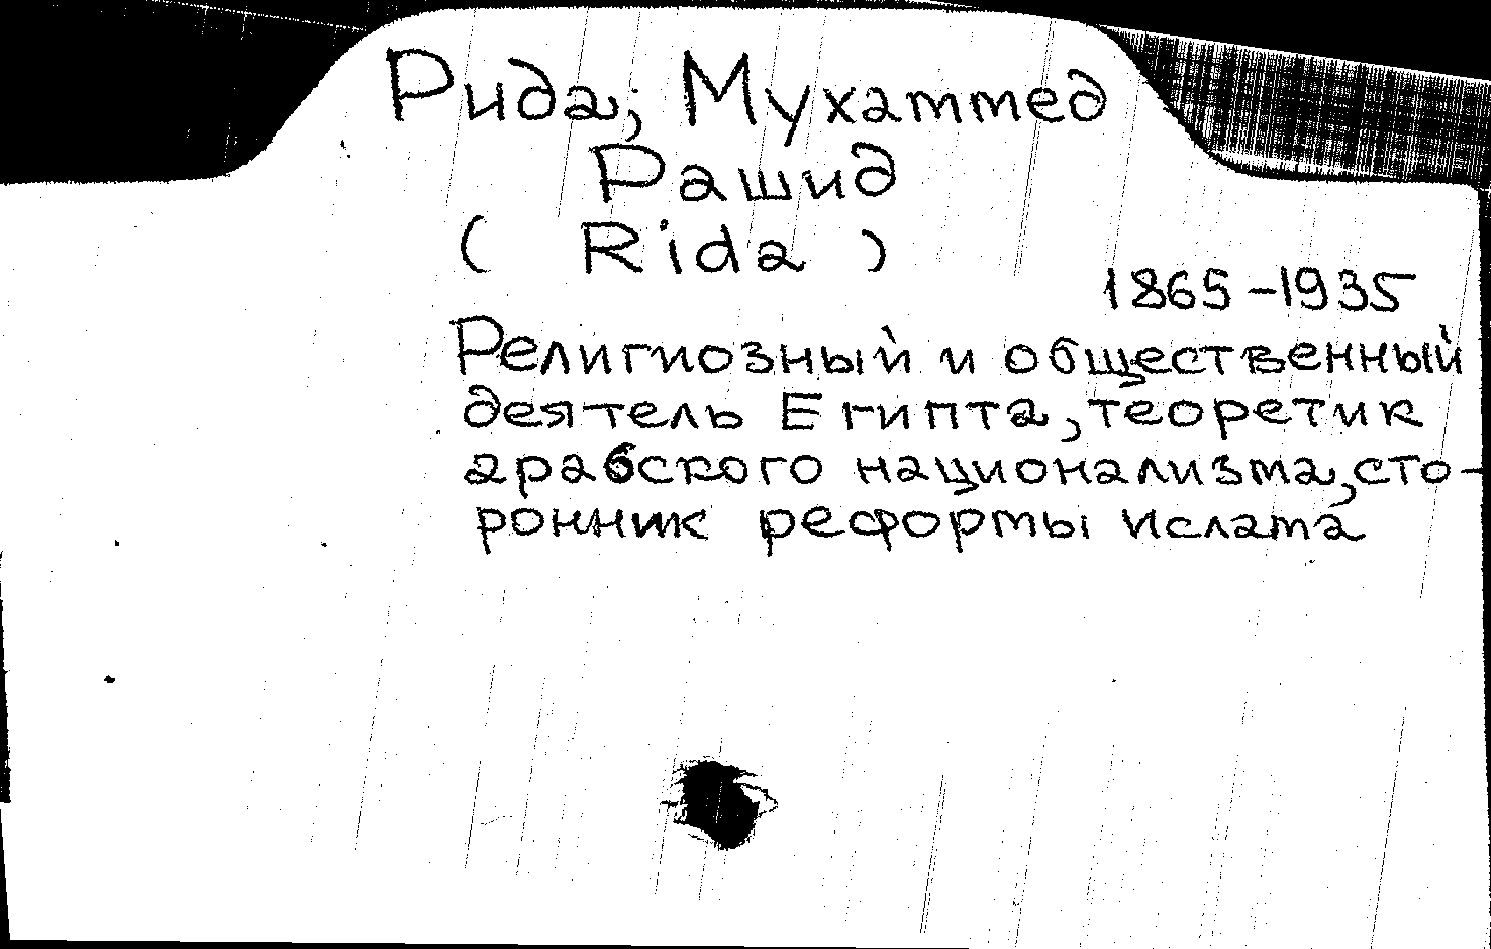 Рида, Мухаммед
Рашид
( Rida )
1865-1935
Религиозный и общественный
деятель Египта, теоретик
арабского национализма, сто-
ронник реформы ислама